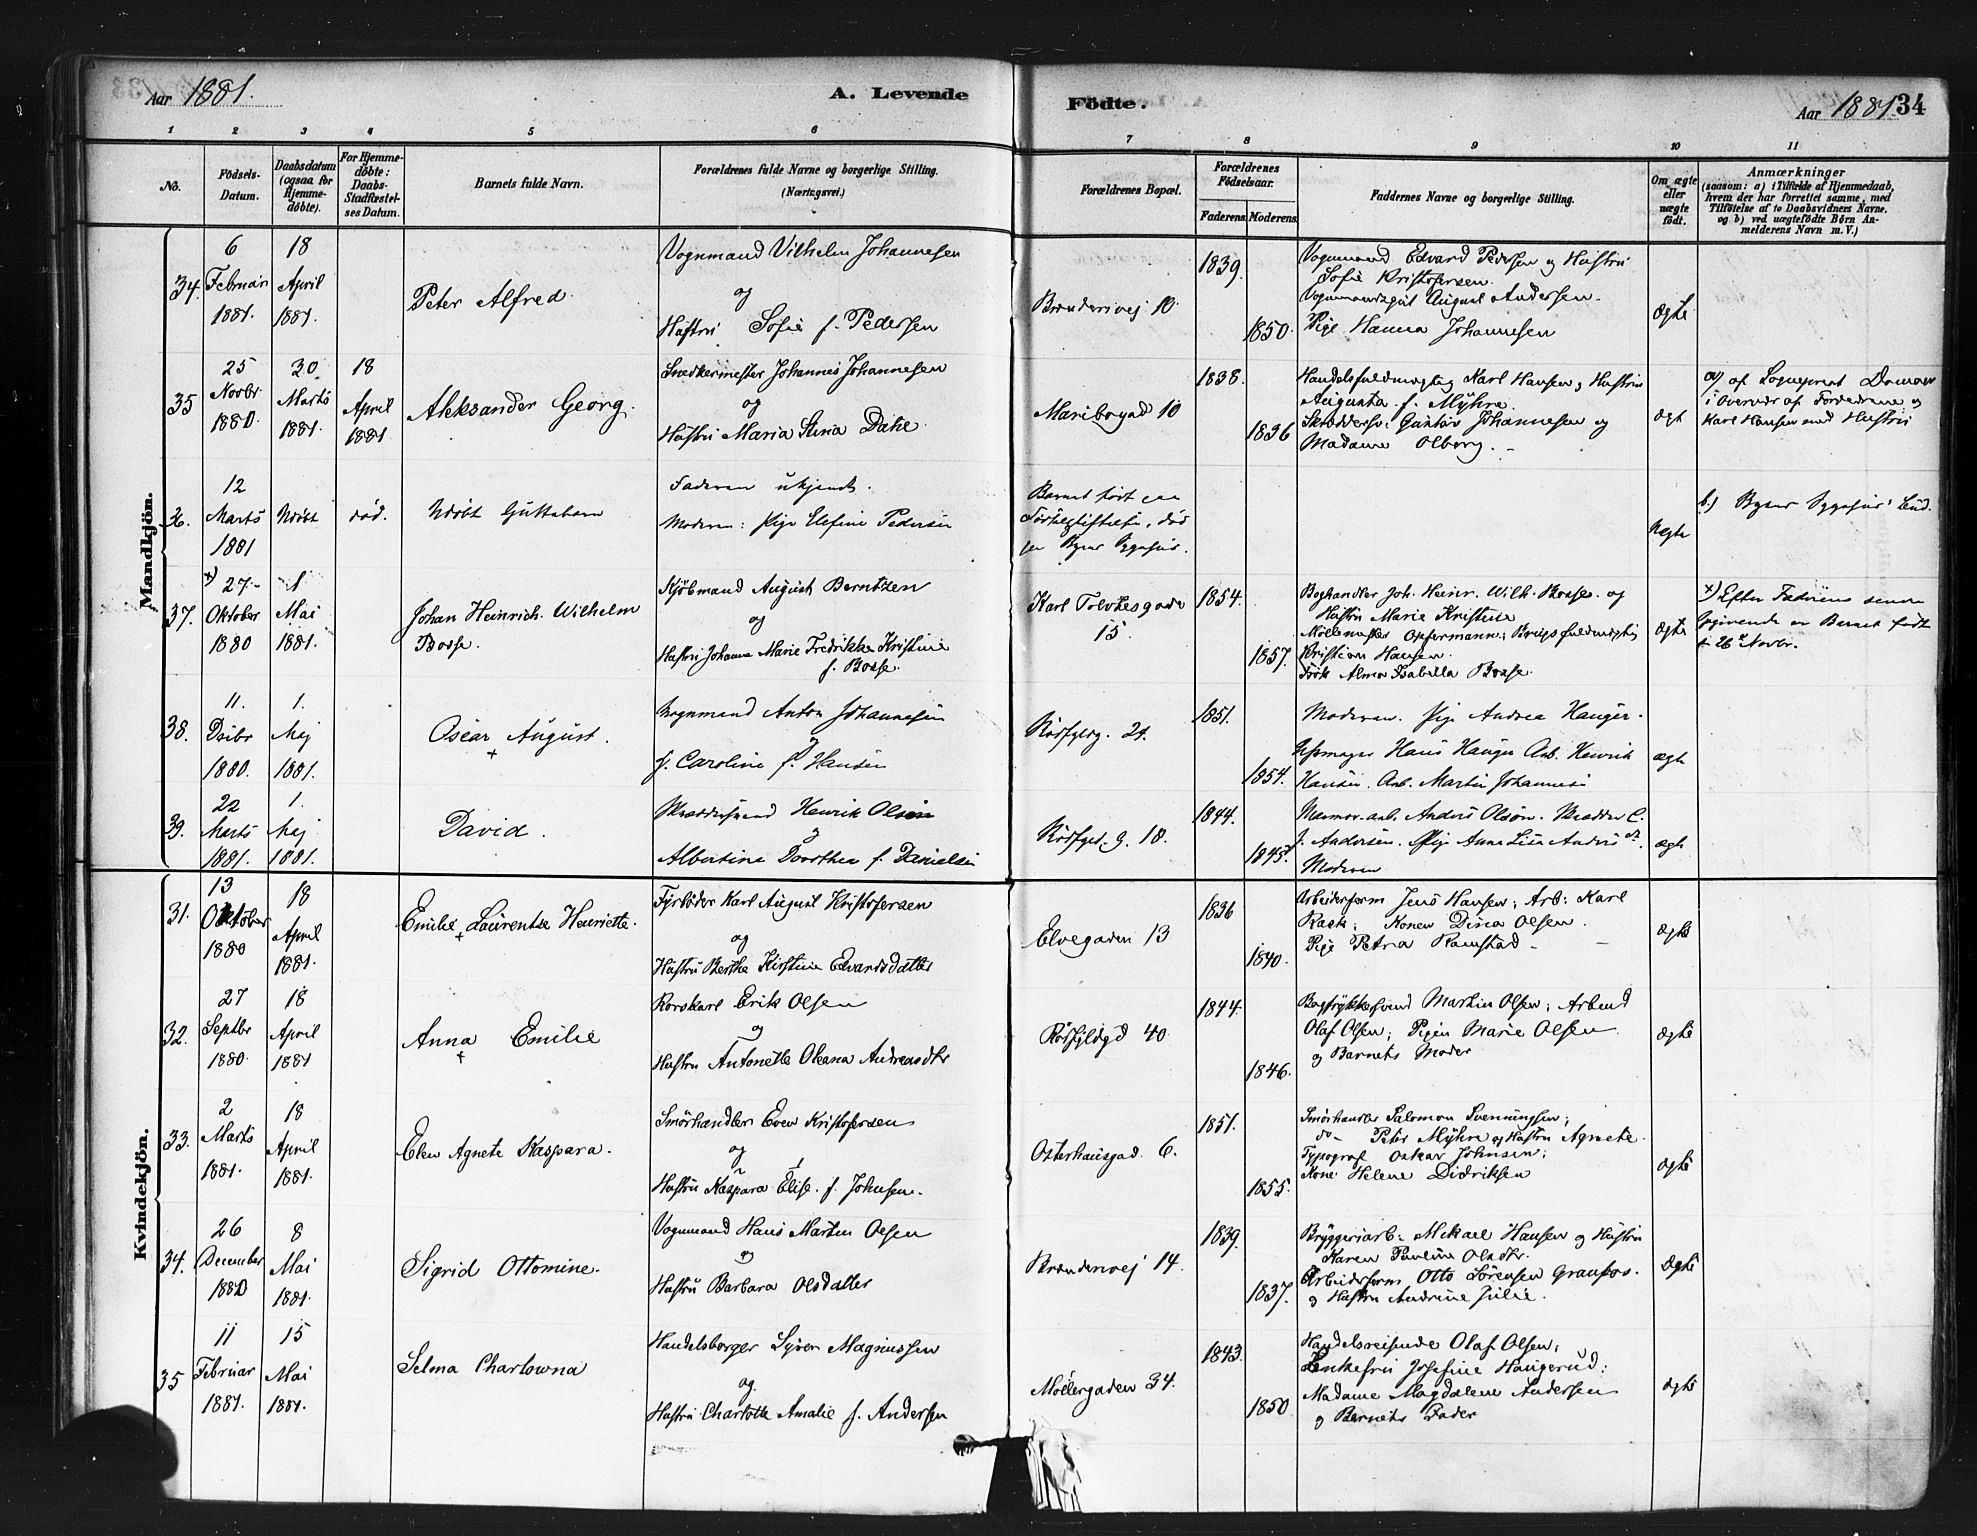 Aar 1881.
A. Levende
Födte.
Aar 1881. 34
1 2 3 4 5 6 7 8 9 10 11
No.
Födsels-
Datum.
Daabsdatum
(ogsaa for
Hjemme-
döbte).
For Hjemme-
döbte:
Daabs-
Stadfæstel-
ses Datum.
Barnets fulde Navn.
Forældrenes fulde Navne og borgerlige Stilling.
(Næringsvei.)
Forældrenes Bopæl.
Forældrenes
Födselsaar.
Faderens. Moderens.
Faddernes Navne og borgerlige Stilling.
Om ægte
eller
uægte
födt.
Anmærkninger
(saasom: a) i Tilfælde af Hjemmedaab,
hvem der har forrettet samme, med
Tilföielse af to Daabsvidners Navne,
og b) ved uægtefödte Börn An-
melderens Navn m. V.)
Mandkjön.
34.
6
Februar
1881.
18
April
1881.
Peter Alfred
Vognmand Vilhelm Johannesen
og
Hustru Sofie f. Pedersen
10.
1839.
1850.
Vognmand Edvard Pedersen og Hustru
Sofie Kristofersen.
August Andersen
Pige Hanna Johannesen
Ægte
35
25
Novbr
1880.
30
Marts
1881.
18
April
1881
Aleksander Georg.
Snedkermester Johannes Johannesen
og
Hustru Maria Stina Dahe.
Mariboegad 10
1838.
1836
Handelsfuldmægtig Karl Hansen og Hustru
Augusta f. Myhre.
Gustav Johannesen og
Madame Olberg.
ægt
a) af Sogneprest
i Overvær af Forældrene og
Karl Hansen med Hustru
36.
12
Marts
1881
Udöbt
död.
Udöbt Guttebarn
Faderen ukjendt.
Moderen: Pige Elefine Pedersen
Barnet födt paa
Födselsstiftelsen, död
paa Byens Sygehus.
Uægte
b) Byens Sygehus'
37.
x) 27
Oktober
1880
1
Mai
1881.
Johan Heinrich Wilhelm
Bosse.
Kjöbmand August Berntzen
og
Hustru Johanna Marie Fredrikke Kristine
f. Bosse.
15.
1854.
1857.
Boghandler Joh. Heinr. Wilh. Bosse og
Hustru Marie Kristine
Möllemester Opfermann; Brugsfuldmægtig
Kristian Hansen.
Frök Alma Isabella Bosse.
ægte
x) Efter Faderens senere
Opgivende er Barnet födt
26 Novbr.
38.
11.
Dcbr
1880.
1.
Maj
1881.
Oscar August.
Vognmand Anton Johannesen
og
f. Caroline f. Hansen
24.
1851.
1854.
Moderen. Pige Andrea Hauger.
Hans Hauger Arb. Henrik
Hansen. Arb. Martin Johannesen
ægte
39.
22
Marts
1881.
1.
Maj
1881.
David.
Skræddersvend Henrik Olsen
og
Albertine Dorothea f. Danielsen
18.
1844.
1845.
Marmor-arb. Anders Olsen. Skrædder C.
J. Andersen. Pige Anne Lise
Moderen
ægte
Kvindekjön.
31.
13
Oktober
1880
18
April
1881.
Emilie Laurentze Henriette.
Fyrböder Karl August Kristofersen
og
Hustru Berthe Kirstine Edvardsdatter
Elvegaden 13
1836
1840.
Arbeiderform Jens Hansen; Arb: Karl
Rask; Konen Dina Olsen.
Pige Petra Ramstad
ægte
32.
27
Septbr
1880.
18
April
1881
Anna Emilie
Korskarl Erik Olsen
og
Hustru Antonette Oleana Andreasdtr
40.
1844.
1846.
Bogtrykkersvend Martin Olsen; Arbmd
Olaf Olsen; Pigen Marie Olsen
og Barnets Moder
ægte
33.
2
Marts
1881.
18
April
1881.
Elen Agnete Kaspara.
Smörhandler Even Kristofersen
og
Hustru Kaspara Elise f. Johnsen.
Osterhausgad. 6.
1851.
1855.
Smörhandler Salomon Svenningsen;
do- Peter Myhre og Hustru Agnete.
Typograf Oskar Johnsen;
Kone Helene Didriksen
ægte
34.
26
December
1880
8
Mai
1881.
Sigrid Ottomine.
Vognmand Hans Martin Olsen
og
Hustru Barbara Olsdatter
14.
1839.
1837.
Bryggeriarb: Mikael Hansen og Hustru
Karen Pauline Olsdtr.
Arbeiderform Otto Sörensen Granfos.
og Hustru Andrine Julie.
Ægte
35
11
Februar
1881.
15
Mai
1881.
Selma Charlowna
Handelsborger Syver Magnussen
og
Hustru Charlotte Amalie f. Andersen
Möllergaden 34.
1843.
1850
Handelsreisende Olaf Olsen;
Enkefru Josefine Haugerud:
Madame Magdalene Andersen
og Barnets Fader
ægte